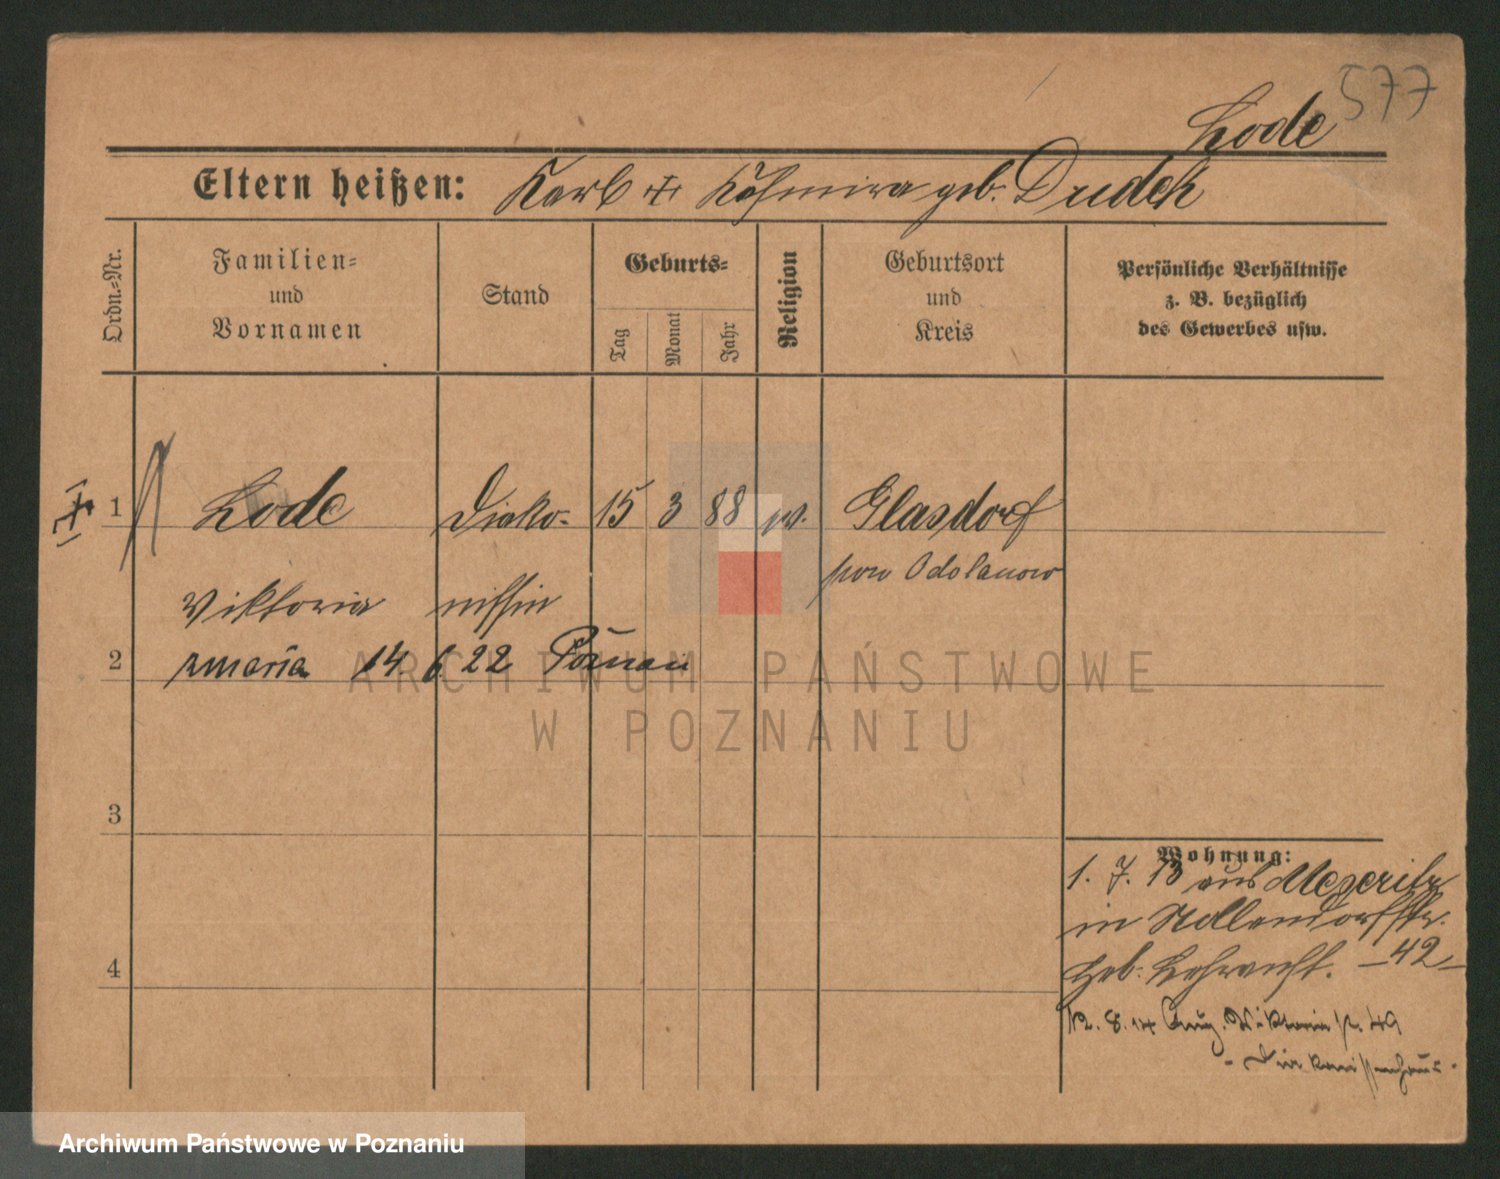 577
Lode
Eltern heißen: Karl + Kasimira geb. Dudek
Ordn.-Nr.
Familien-
und
Vornamen
Stand
Geburts-
Tag
Monat
Jahr
Religion
Geburtsort
und
Kreis
Persönliche Verhältnisse
z. B. bezüglich
des Gewerbes usw.
1 Lode Diako- 15 3 88 ev. Glasdorf
pow Odolanow
Viktoria nissin
2 Maria 14. 6. 22 Poznań
3
4
Wohnung:
1. 7. 13 aus Meseritz
in Nollendorfstr.
42
12. 8. 14 Aug. Viktoria str. 49
- Diakonissenhaus -
ARCHIWUM PAŃSTWOWE
W POZNANIU
Archiwum Państwowe w Poznaniu